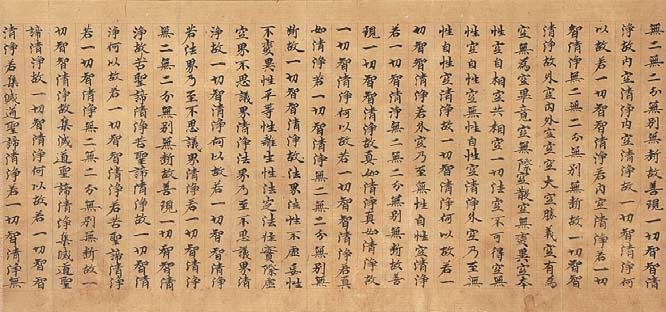 無二無二分無別無斷故善現一切智智清
淨故內空清淨內空清淨故一切智智清淨何
以故若一切智智清淨若內空清淨若一切
智智清淨無二無二分無別無斷故一切智智
清淨故外空內外空空空大空勝義空有為
空無為空畢竟空無際空散空無變異空本
性空自相空共相空一切法空不可得空無
性空自性空無性自性空清淨外空乃至無
性自性空清淨故一切智智清淨何以故若一
切智智清淨若外空乃至無性自性空清淨
若一切智智清淨無二無二分無別無斷故善
現一切智智清淨故真如清淨真如清淨故
一切智智清淨何以故若一切智智清淨若真
如清淨若一切智智清淨無二無二分無別無
斷故一切智智清淨故法界法性不虛妄性
不變異性平等性離生性法定法住實際虛
空界不思議界清淨法界乃至不思議界清
淨故一切智智清淨何以故若一切智智清淨
若法界乃至不思議界清淨若一切智智清淨
無二無二分無別無斷故善現一切智智清
淨故苦聖諦清淨苦聖諦清淨故一切智智清
淨何以故若一切智智清淨若苦聖諦清淨
若一切智智清淨無二無二分無別無斷故一
切智智清淨故集滅道聖諦清淨集滅道聖
諦清淨故一切智智清淨何以故若一切智智
清淨若集滅道聖諦清淨若一切智智清淨無